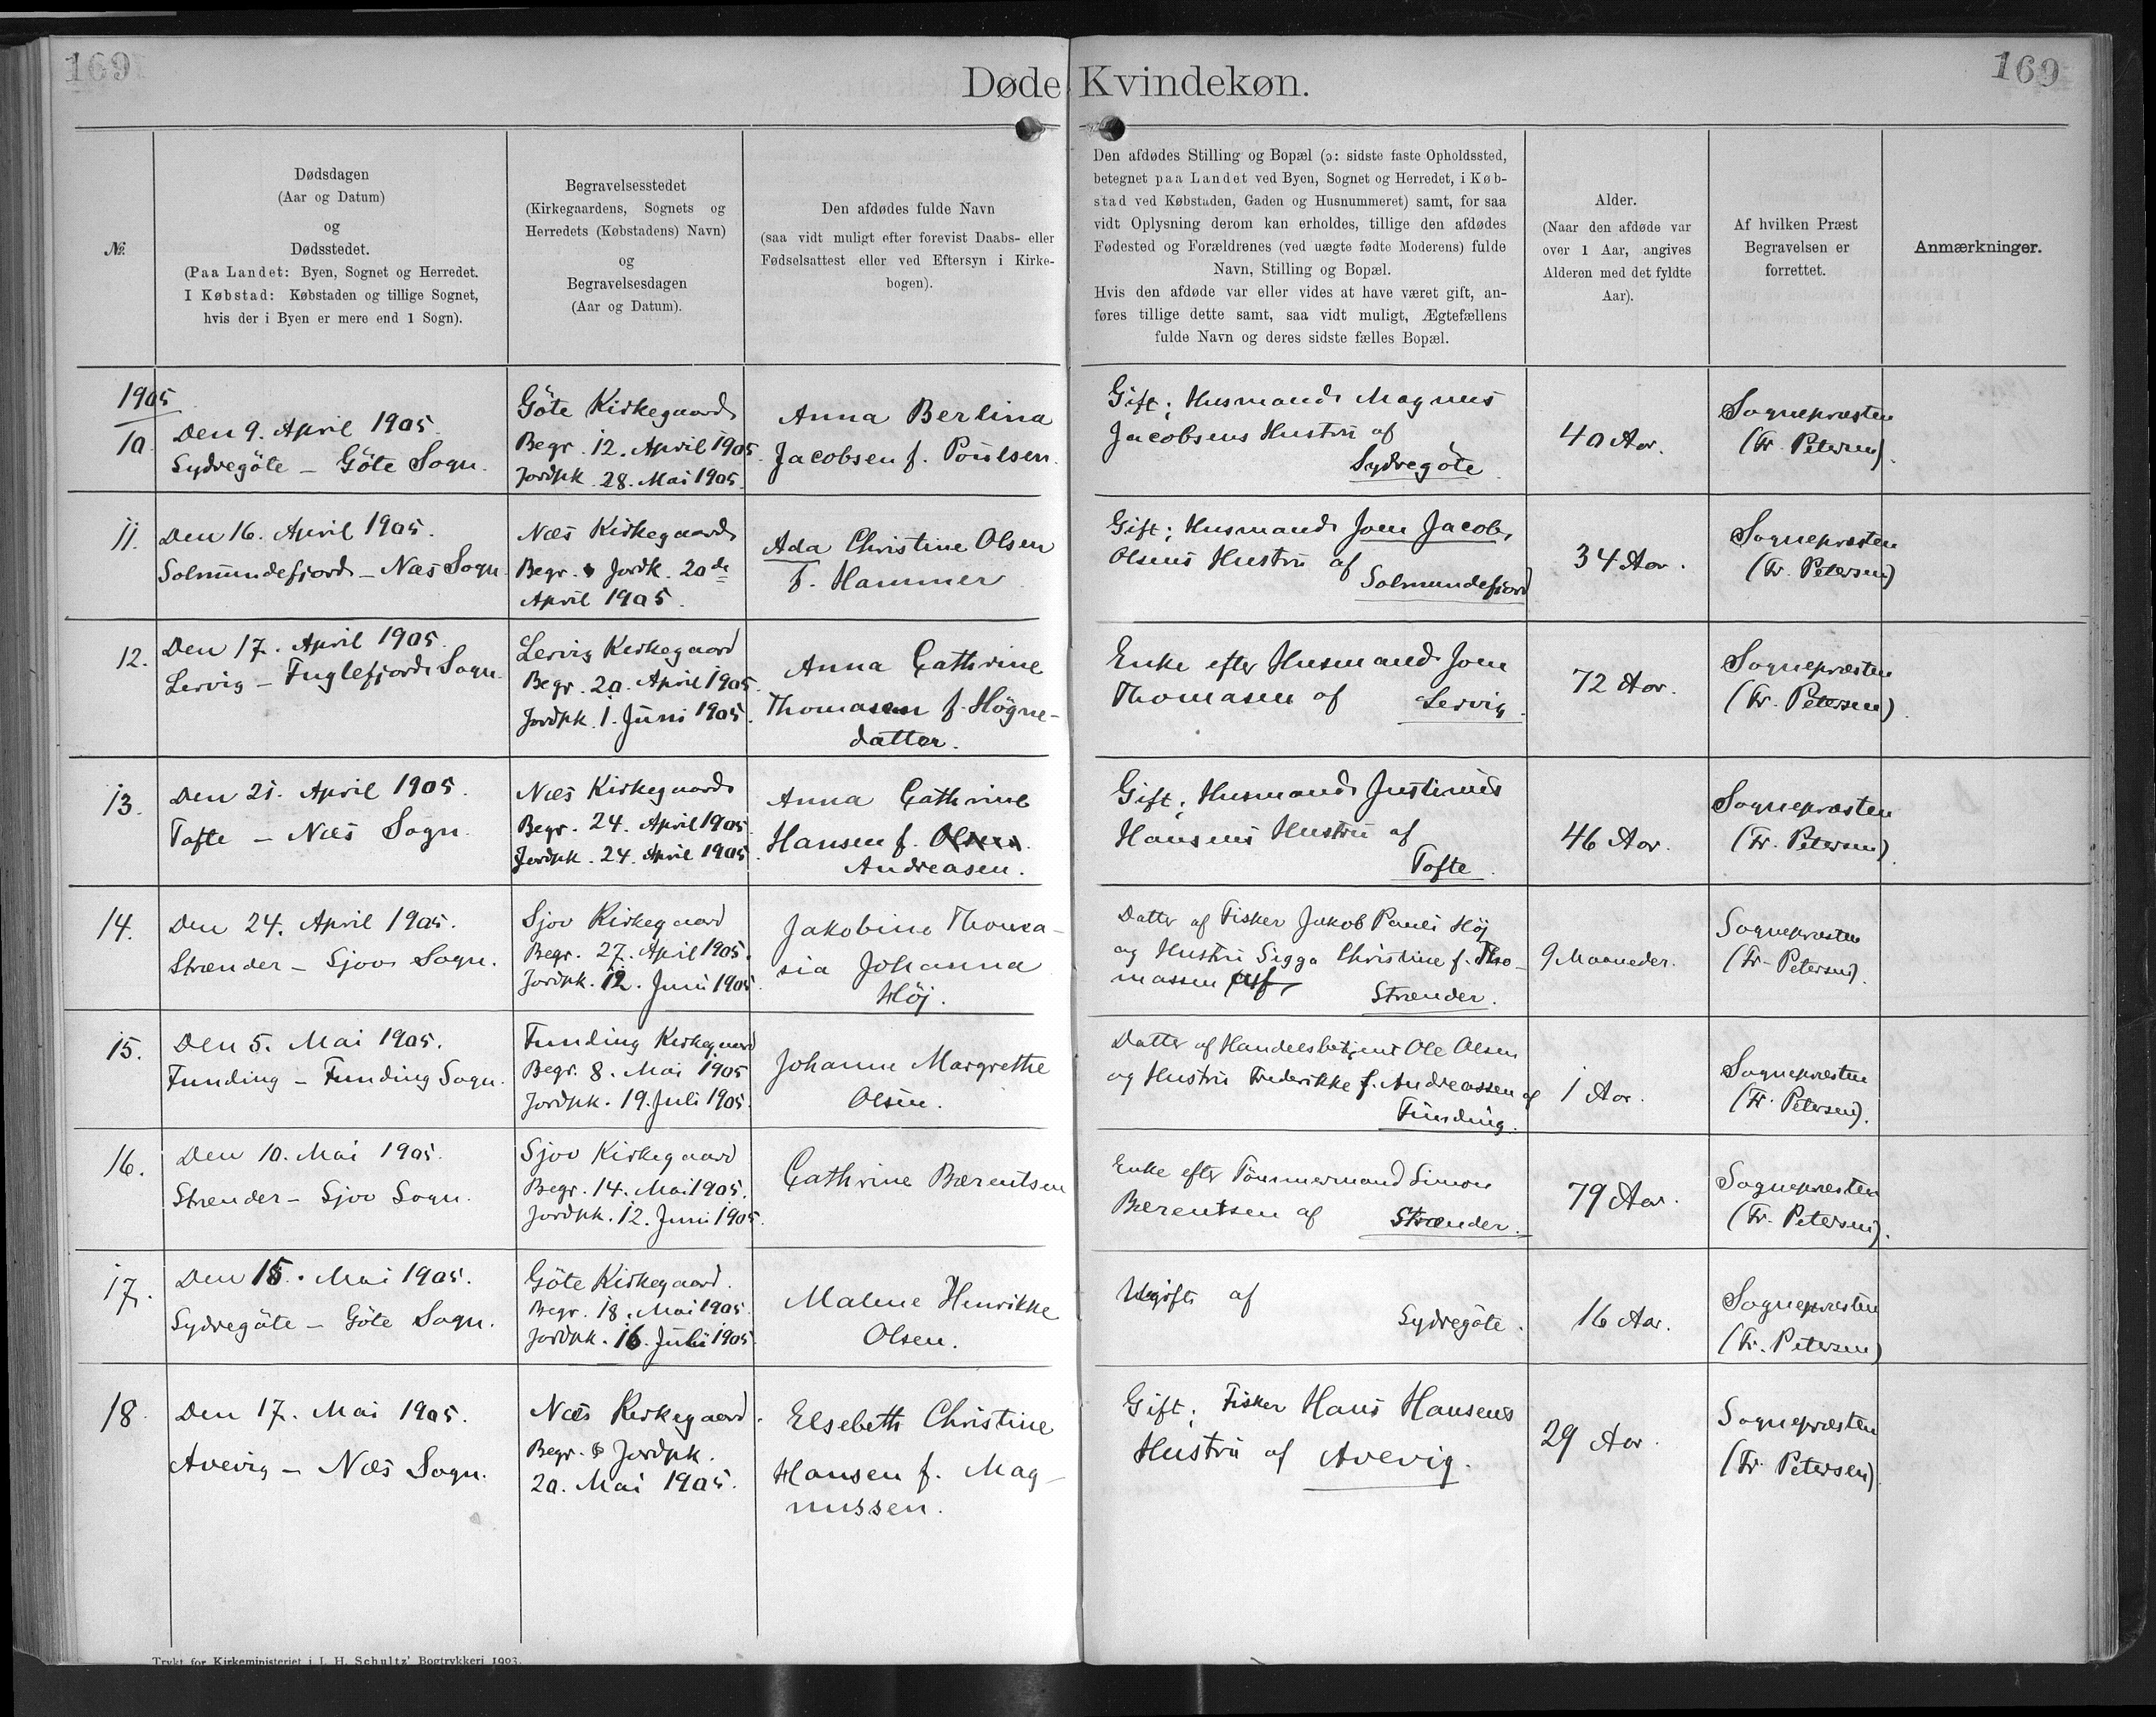 169
169
Døde Kvindekøn.
№.
Dødsdagen
(Aar og Datum)
og
Dødsstedet.
(Paa Landet: Byen, Sognet og Herredet.
I Købstad: Købstaden og tillige Sognet,
hvis der i Byen er mere end 1 Sogn).
Begravelsesstedet
(Kirkegaardens, Sognets og
Herredets (Købstadens) Navn)
og
Begravelsesdagen
(Aar og Datum).
Den afdødes fulde Navn
(saa vidt muligt efter forevist Daabs- eller
Fødselsattest eller ved Eftersyn i Kirke-
bogen).
Den afdødes Stilling og Bopæl (ɔ: sidste faste Opholdssted,
betegnet paa Landet ved Byen, Sognet og Herredet, i Køb-
stad ved Købstaden, Gaden og Husnummeret) samt, for saa
vidt Oplysning derom kan erholdes, tillige den afdødes
Fødested og Forældrenes (ved uægte fødte Moderens) fulde
Navn, Stilling og Bopæl.
Hvis den afdøde var eller vides at have været gift, an-
føres tillige dette samt, saa vidt muligt, Ægtefællens
fulde Navn og deres sidste fælles Bopæl.
Alder.
(Naar den afdøde var
over 1 Aar, angives
Alderen med det fyldte
Aar).
Af hvilken Præst
Begravelsen er
forrettet.
Anmærkninger.
1905
10
Den 9. April 1905.
Sydregöte – Göte Sogn.
Göte Kirkegaard
Begr. 12. April 1905.
Jordpk. 28. Mai 1905.
Anna Berlina
Jacobsen f. Poulsen.
Gift; Husmand Magnus
Jacobsens Hustru af
Sydregöte
40 Aar.
Sognepræsten
(Fr. Petersen).
11.
Den 16. April 1905.
Solmundefjord – Næs Sogn
Næs Kirkegaard
Begr. & Jordk. 20de
April 1905.
Ada Christine Olsen
f. Hammer
Gift; Husmand Joen Jacob,
Olsens Hustru af
Solmundefjord
34 Aar.
Sognepræsten
(Fr. Petersen)
12.
Den 17. April 1905.
Lervig – Fuglefjord Sogn.
Lervig Kirkegaard
Begr. 20. April 1905.
Jordpk. 1. Juni 1905.
Anna Cathrine
Thomasen f. Högne-
datter.
Enke efter Husmand Joen
Thomasen af
Lervig.
72 Aar.
Sognepræsten
(Fr. Petersen).
13.
Den 21. April 1905.
Tofte – Næs Sogn.
Næs Kirkegaard
Begr. 24. April 1905.
Jordpk. 24. April 1905.
Anna Cathrine
Hansen f. Olsen.
Andreasen.
Gift; Husmand Justinus
Hansens Hustru af
Tofte.
46 Aar.
Sognepræsten
(Fr. Petersen).
14.
Den 24. April 1905.
Strænder – Sjov Sogn.
Sjov Kirkegaard
Begr. 27. April 1905.
Jordpk. 12. Juni 1905
Jakobine Thoma-
sia Johanna
Höj.
Datter af Fisker Jakob Pauli Höj
og Hustru Sigga Christine f. Tho-
massen af
Strænder.
9 Maaneder.
Sognepræsten
(Fr. Petersen).
15.
Den 5. Mai 1905.
Funding – Funding Sogn.
Funding Kirkegaard
Begr. 8. Mai 1905
Jordpk. 19. Juli 1905.
Johanne Margrethe
Olsen.
Datter af Handelsbetjent Ole Olsen
og Hustru Frederikke f. Andreassen af
Funding.
1 Aar.
Sognepræsten
(Fr. Petersen).
16.
Den 10. Mai 1905.
Strænder – Sjov Sogn.
Sjov Kirkegaard
Begr. 14. Mai 1905.
Jordpk. 12. Juni 1905.
Cathrine Bærentsen
Enke efter Tömmermand Simon
Bærentsen af
Strænder.
79 Aar.
Sognepræsten
(Fr. Petersen).
17.
Den 15. Mai 1905.
Sydregöte – Göte Sogn.
Göte Kirkegaard.
Begr. 18. Mai 1905.
Jordpk. 16. Juli 1905.
Malene Henrikke
Olsen.
Ugift af
Sydregöte.
16 Aar.
Sognepræsten
(Fr. Petersen)
18.
Den 17. Mai 1905.
Avevig – Næs Sogn.
Næs Kirkegaard.
Begr. & Jordpk.
20. Mai 1905.
Elsebeth Christine
Hansen f. Mag-
nussen.
Gift; Fisker Hans Hansens
Hustru af Avevig.
29 Aar.
Sognepræsten
(Fr. Petersen).
Trykt for Kirkeministeriet i J. H. Schultz' Bogtrykkeri 1903.